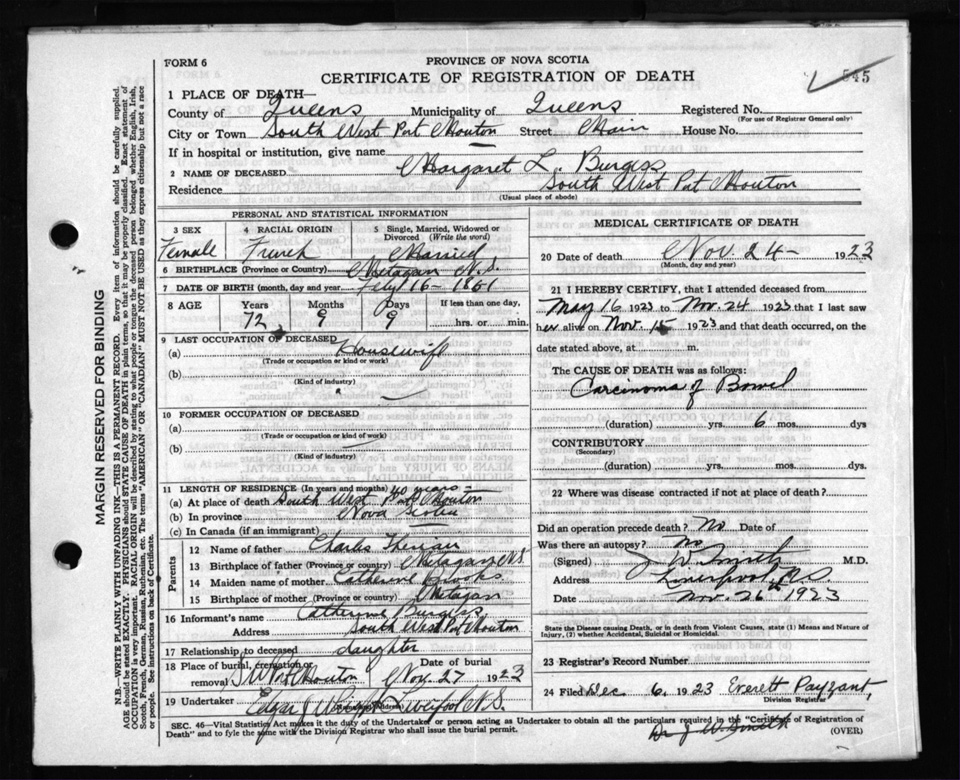 FORM 6
PROVINCE OF NOVA SCOTIA
CERTIFICATE OF REGISTRATION OF DEATH
545
1 PLACE OF DEATH—
County of Queens Municipality of Queens Registered No.
(For use of Registrar General only)
City or Town South West Port Mouton Street Main House No.
If in hospital or institution, give name
2 NAME OF DECEASED Margaret L. Burgess
Residence South West Port Mouton
(Usual place of abode)
PERSONAL AND STATISTICAL INFORMATION
3 SEX 4 RACIAL ORIGIN 5 Single, Married, Widowed or Divorced (Write the word)
Female French Married
6 BIRTHPLACE (Province or Country) Metagan N.S.
7 DATE OF BIRTH (month, day and year) Feb 16 - 1851
8 AGE Years Months Days If less than one day,
72 9 9 hrs. or min.
9 LAST OCCUPATION OF DECEASED
(a) Housewife
(Trade or occupation or kind or work)
(b)
(Kind of industry)
10 FORMER OCCUPATION OF DECEASED
(a)
(Trade or occupation or kind of work)
(b)
(Kind of industry)
11 LENGTH OF RESIDENCE (In years and months) 40 years
(a) At place of death South West Port Mouton
(b) In province Nova Scotia
(c) In Canada (if an immigrant)
Parents
12 Name of father Charles
13 Birthplace of father (Province or country) Metagan N.S.
14 Maiden name of mother Catherine Brooks
15 Birthplace of mother (Province or country) Metagan
16 Informant's name Catherine Burgess
Address South West Port Mouton
17 Relationship to deceased daughter
18 Place of burial, cremation or removal S W Port Mouton Date of burial Nov. 27 1923
19 Undertaker Edgar J Liverpool N.S.
MEDICAL CERTIFICATE OF DEATH
20 Date of death Nov 24 - 1923
(Month, day and year)
21 I HEREBY CERTIFY, that I attended deceased from
May 16 1923 to Nov. 24 1923 that I last saw
her alive on Nov. 15 1923 and that death occurred, on the
date stated above, at m.
The CAUSE OF DEATH was as follows:
Carcinoma of Bowel
(duration) yrs. 6 mos. dys
CONTRIBUTORY
(Secondary)
(duration) yrs. mos. dys
22 Where was disease contracted if not at place of death?
Did an operation precede death? No Date of
Was there an autopsy? No
(Signed) J. W. Smith M.D.
Address Liverpool, N.S.
Date Nov. 26th 1923
State the Disease causing Death, or in death from Violent Causes, state (1) Means and Nature of
Injury, (2) whether Accidental, Suicidal or Homicidal.
23 Registrar's Record Number
24 Filed Dec 6, 1923 Everett Payzant,
Division Registrar
SEC. 46—Vital Statistics Act makes it the duty of the Undertaker or person acting as Undertaker to obtain all the particulars required in the "Certificate of Registration of
Death" and to fyle the same with the Division Registrar who shall issue the burial permit.
Dr J W Smith
(OVER)
MARGIN RESERVED FOR BINDING
N.B.—WRITE PLAINLY WITH UNFADING INK—THIS IS A PERMANENT RECORD. Every item of information should be carefully supplied.
AGE should be stated EXACTLY. PHYSICIANS should STATE CAUSE OF DEATH in plain terms, so that it may be properly classified. Exact statement of
OCCUPATION is very important. RACIAL ORIGIN will be described by stating to what people or tongue the deceased person belonged whether English, Irish,
Scotch, French, German, Russian, Ruthenian, etc. The terms "AMERICAN" or "CANADIAN" MUST NOT BE USED as they express citizenship but not a race
or people. See instructions on back of Certificate.